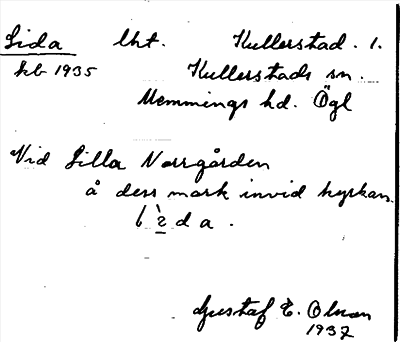 Lida lht. Kullerstad. 1.
kb 1935 Kullerstads sn.
Memmings hd. Ögl
Vid Lilla Norrgården
å dess mark invid kyrkan.
da.
Gustaf E. Olsson
1937